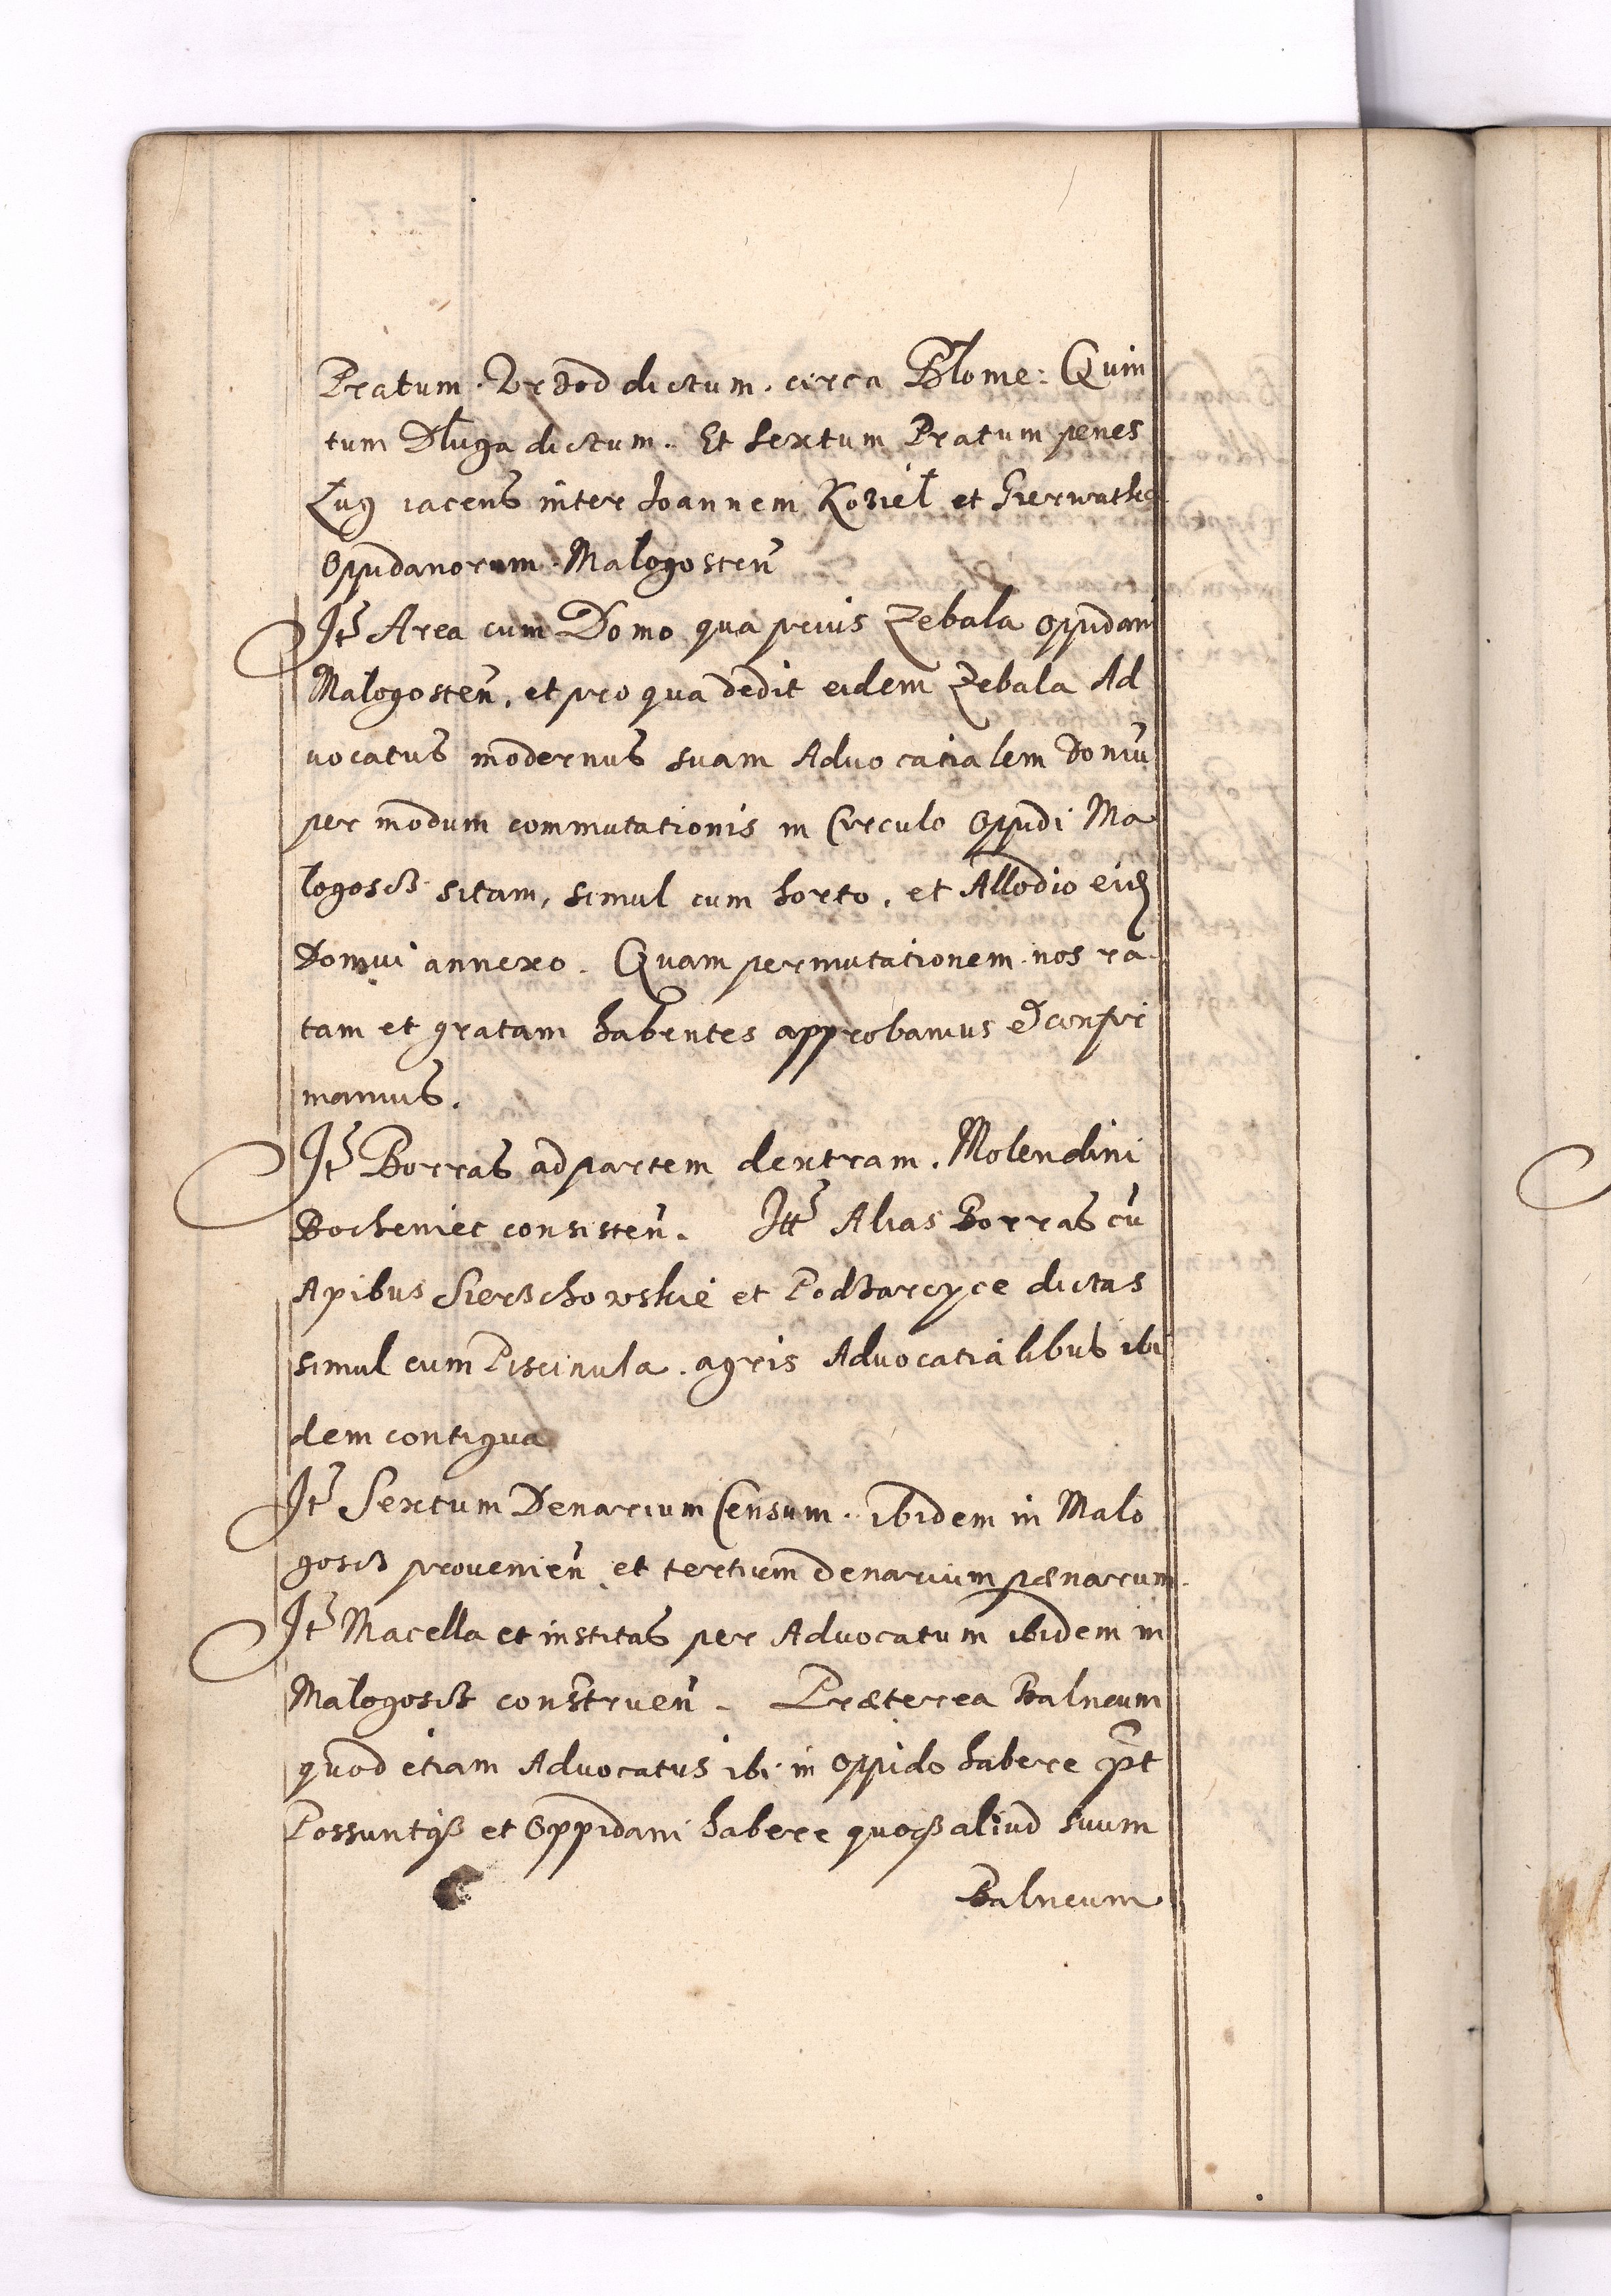 Pratum. Brzod dictum. circa Błome: Quin
tum Długa dictum. Et sextum Pratum penes
Ług iacens inter Joannem Koziel et Gierwathka
Oppidanorum. Malogosten̄
Itꝫ Area cum Domo qua prius Zebala oppidani
Malogosten̄, et pro qua dedit eidem Zebala Ad
uocatus modernus suam Aduocatialem Domū
per modum commutationis in Circulo Oppidi Ma
logoscz sitam, simul cum horto, et Allodio eidē
Domui annexo. Quam permutationem nos ra
tam et gratam habentes approbamus et confir
mamus.
Itꝫ Borras ad partem dextram. Molendini
Bocheniec consisten̄. Ittꝫ Alias Borras cū
Apibus Sierzchowskie et Podzarcyce dictas
simul cum Piscinula. agris Aduocatialibus ibi
dem contigua
Itꝫ Sextum Denarium Censum. ibidem in Malo
goscz prouenien̄ et tertium denarium pœnarum.
Itꝫ Macella et institas per Aduocatum ibidem in
Malogoscz construen̄. Præterea Balneum
quod etiam Aduocatus ibi in oppido habere pōt
Possuntqꝫ et Oppidani habere quoqꝫ aliud suum
Balneum